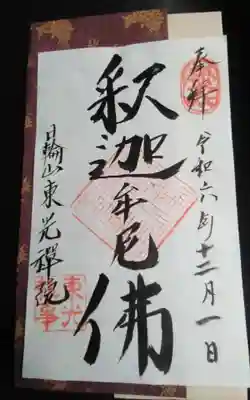 奉拝
令和六年十二月一日
釈迦牟尼佛
日輪山東光禅院